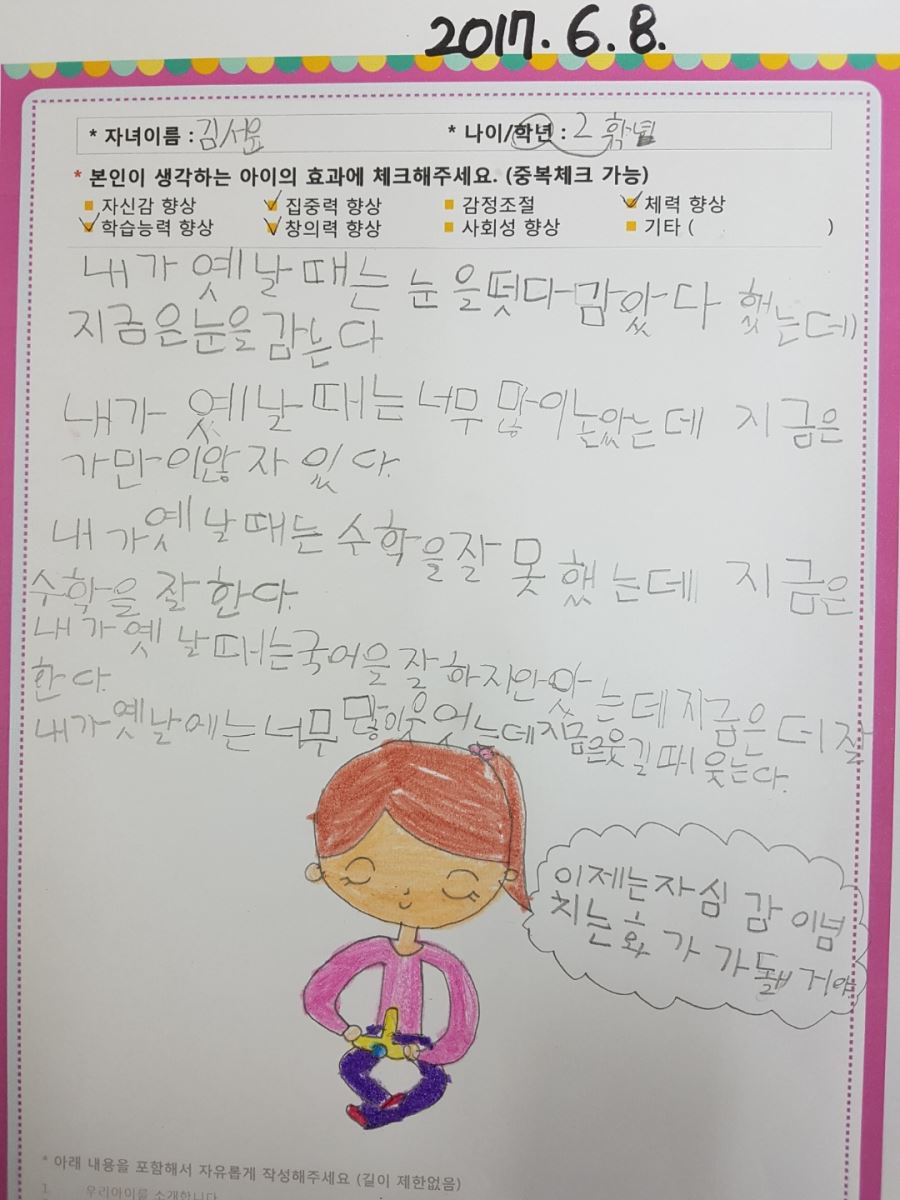 2017. 6. 8.
* 자녀이름 : 김서윤 * 나이/학년 : 2 학년
* 본인이 생각하는 아이의 효과에 체크해주세요. (중복체크 가능)
자신감 향상 집중력 향상 감정조절 체력 향상
학습능력 향상 창의력 향상 사회성 향상 기타 ( )
내가 옛날 때는 눈을떳다감았다 했는데
지금은눈을감는다
내가 옛날 때는 너무 많이놀았는데 지금은
가만이않자 있다.
내가옛날때는 수학을잘 못했는데 지금은
수학을 잘 한다.
내가옛날때는국어을잘하지안았는데지금은 더잘
한다.
내가옛날에는너무많이웃었는데지금은웃길때웃는다.
이제는자심감이넘
치는화가가됄거야
* 아래 내용을 포함해서 자유롭게 작성해주세요 (길이 제한없음)
1 우리아이를 소개합니다